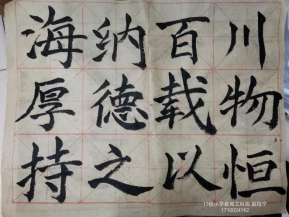 海纳百川
厚德载物
持之以恒
17级小学教育文科班
1710024152